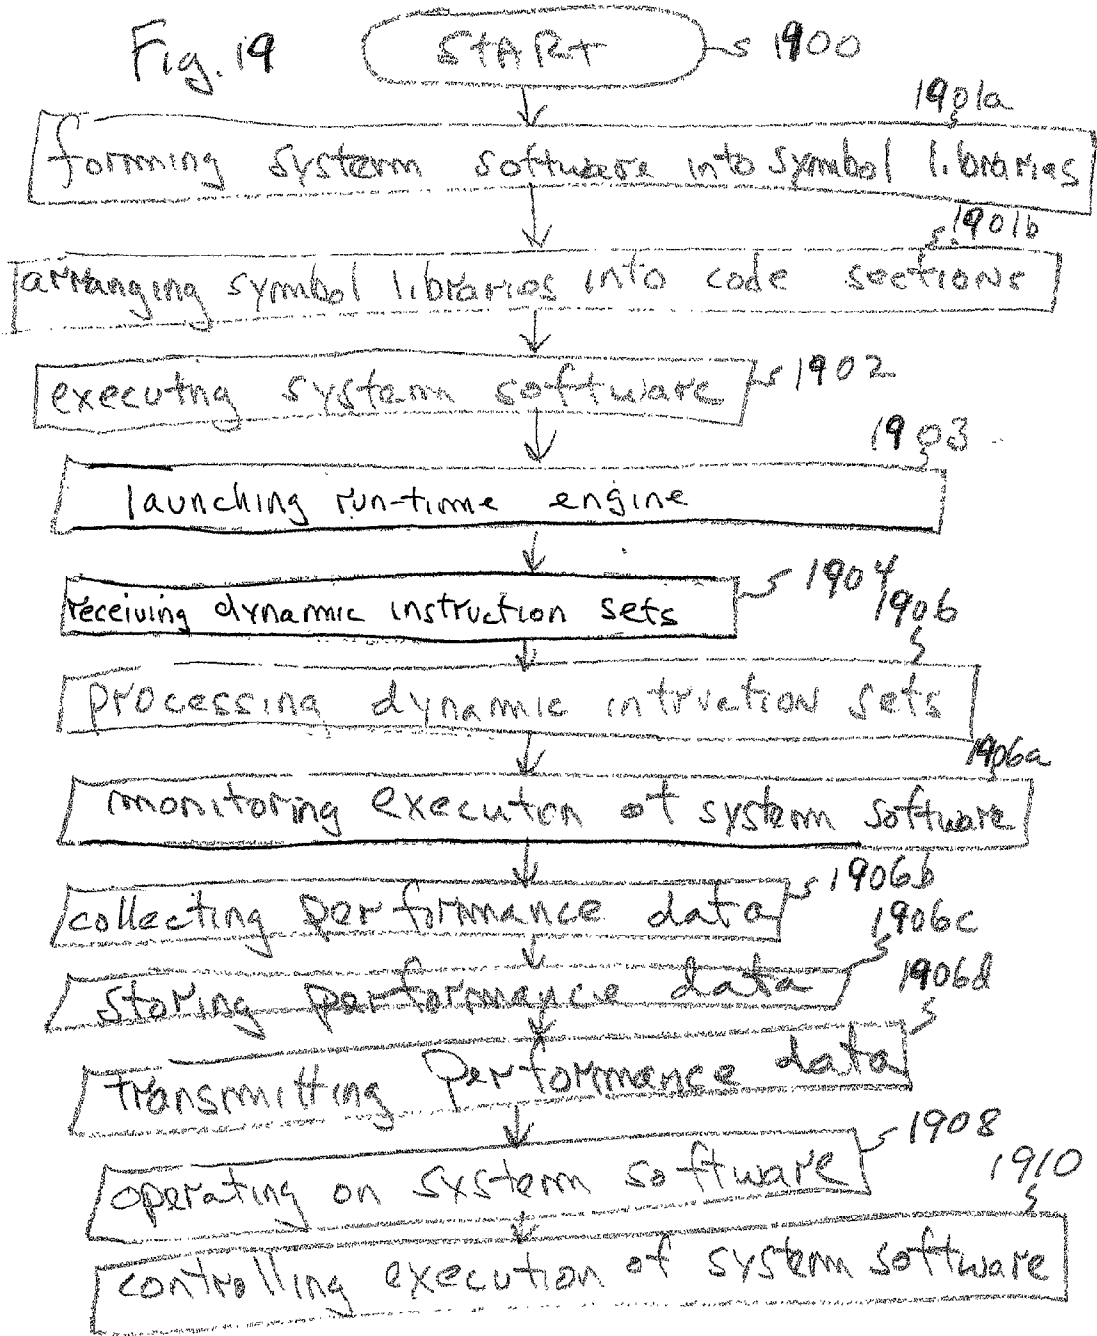 Fig. 19
START 1900
1901a
forming system software into symbol libraries
1901b
arranging symbol libraries into code sections
executng system software 1902
1903
launching run-time engine
1904
receiving dynamic instruction sets
1906
processing dynamic intruction sets
1906a
monitoring execution of system software
1906b
collecting performance data
1906c
storing performance data
1906d
transmitting performance data
1908
operating on system software
1910
controlling execution of system software